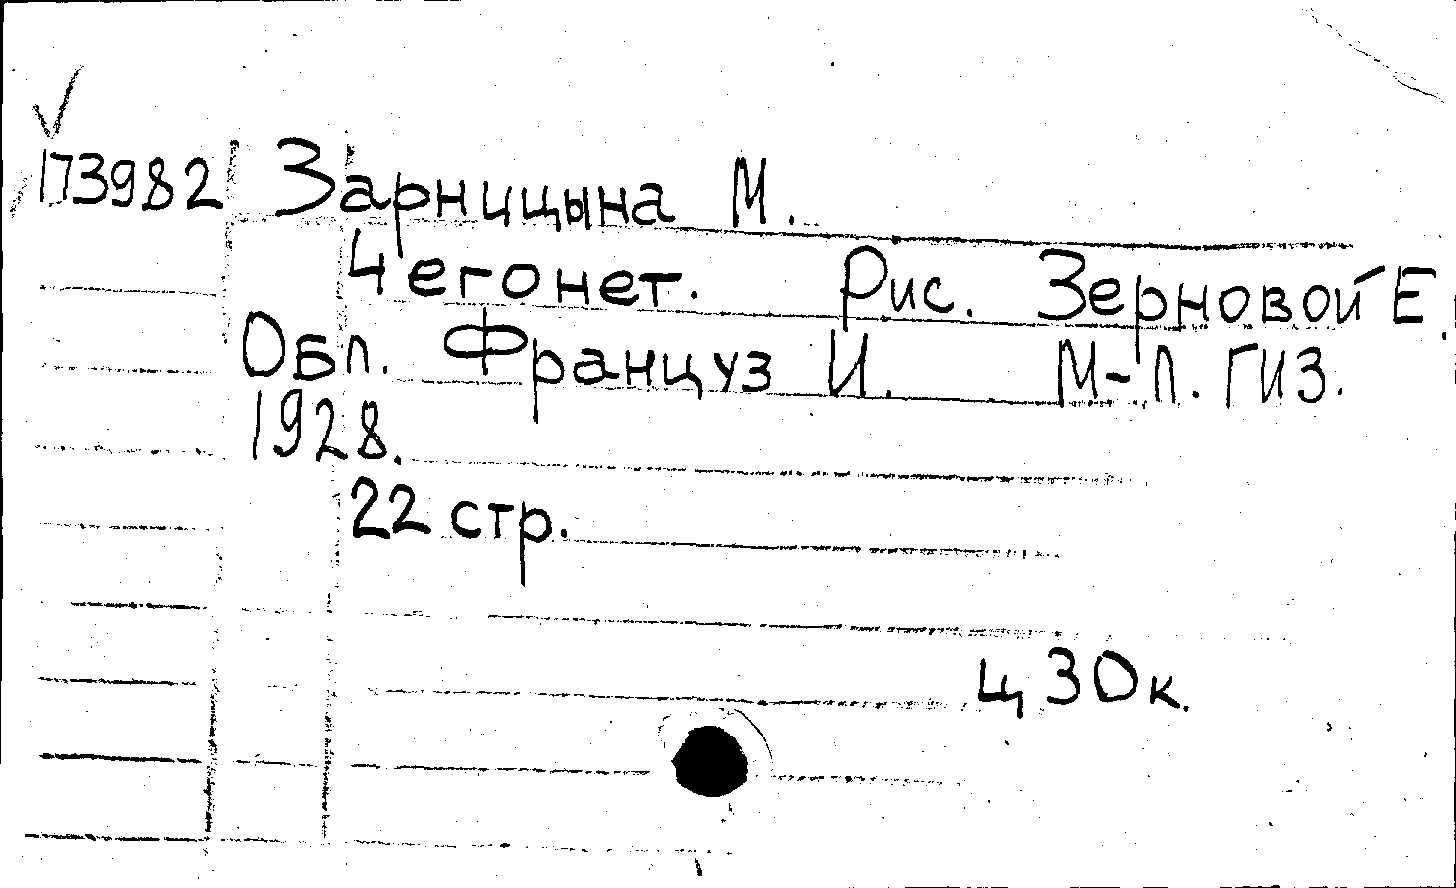 П3982 Зарницына М.
Чегонет. Рис. Зерновой Е.
Обл. Француз И. М-Л. ГИЗ.
1928.
22 стр.
ц 30к.